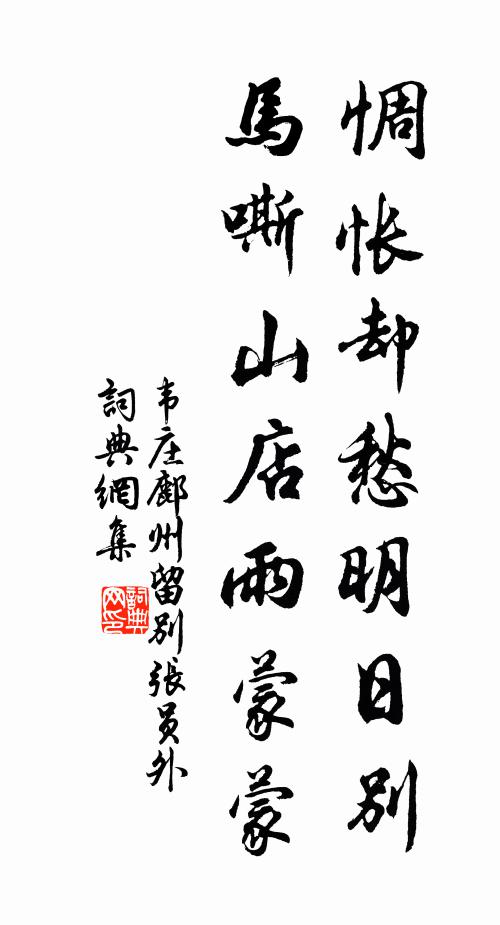 惆怅却愁明日別
馬嘶山店雨蒙蒙
韦庄鄜州留別張员外
詞典網集
詞典网印